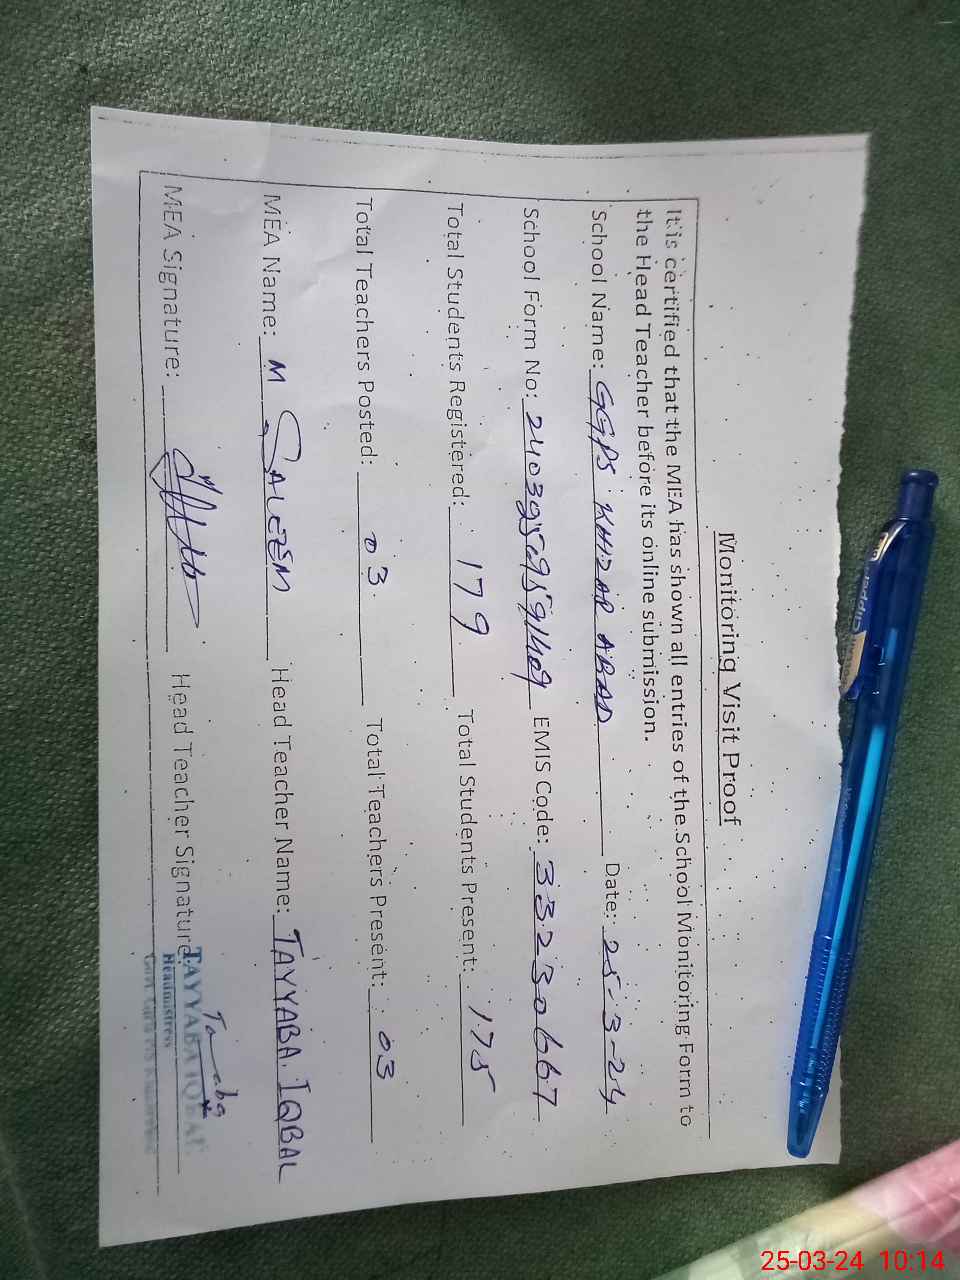 Monitoring Visit Proof
It is certified that the MEA has shown all entries of the School Monitoring Form to
the Head Teacher before its online submission.
School Name: GGPS KHIZAR ABAD Date: 25-3-24
School Form No: EMIS Code: 33230667
Total Students Registered: 179 Total Students Present: 175
Total Teachers Posted: 03 Total Teachers Present: 03
MEA Name: M SALEEM Head Teacher Name: TAYYABA IQBAL
MEA Signature: Head Teacher Signature
TAYYABA IQBAL
Headmistress
25-03-24 10:14